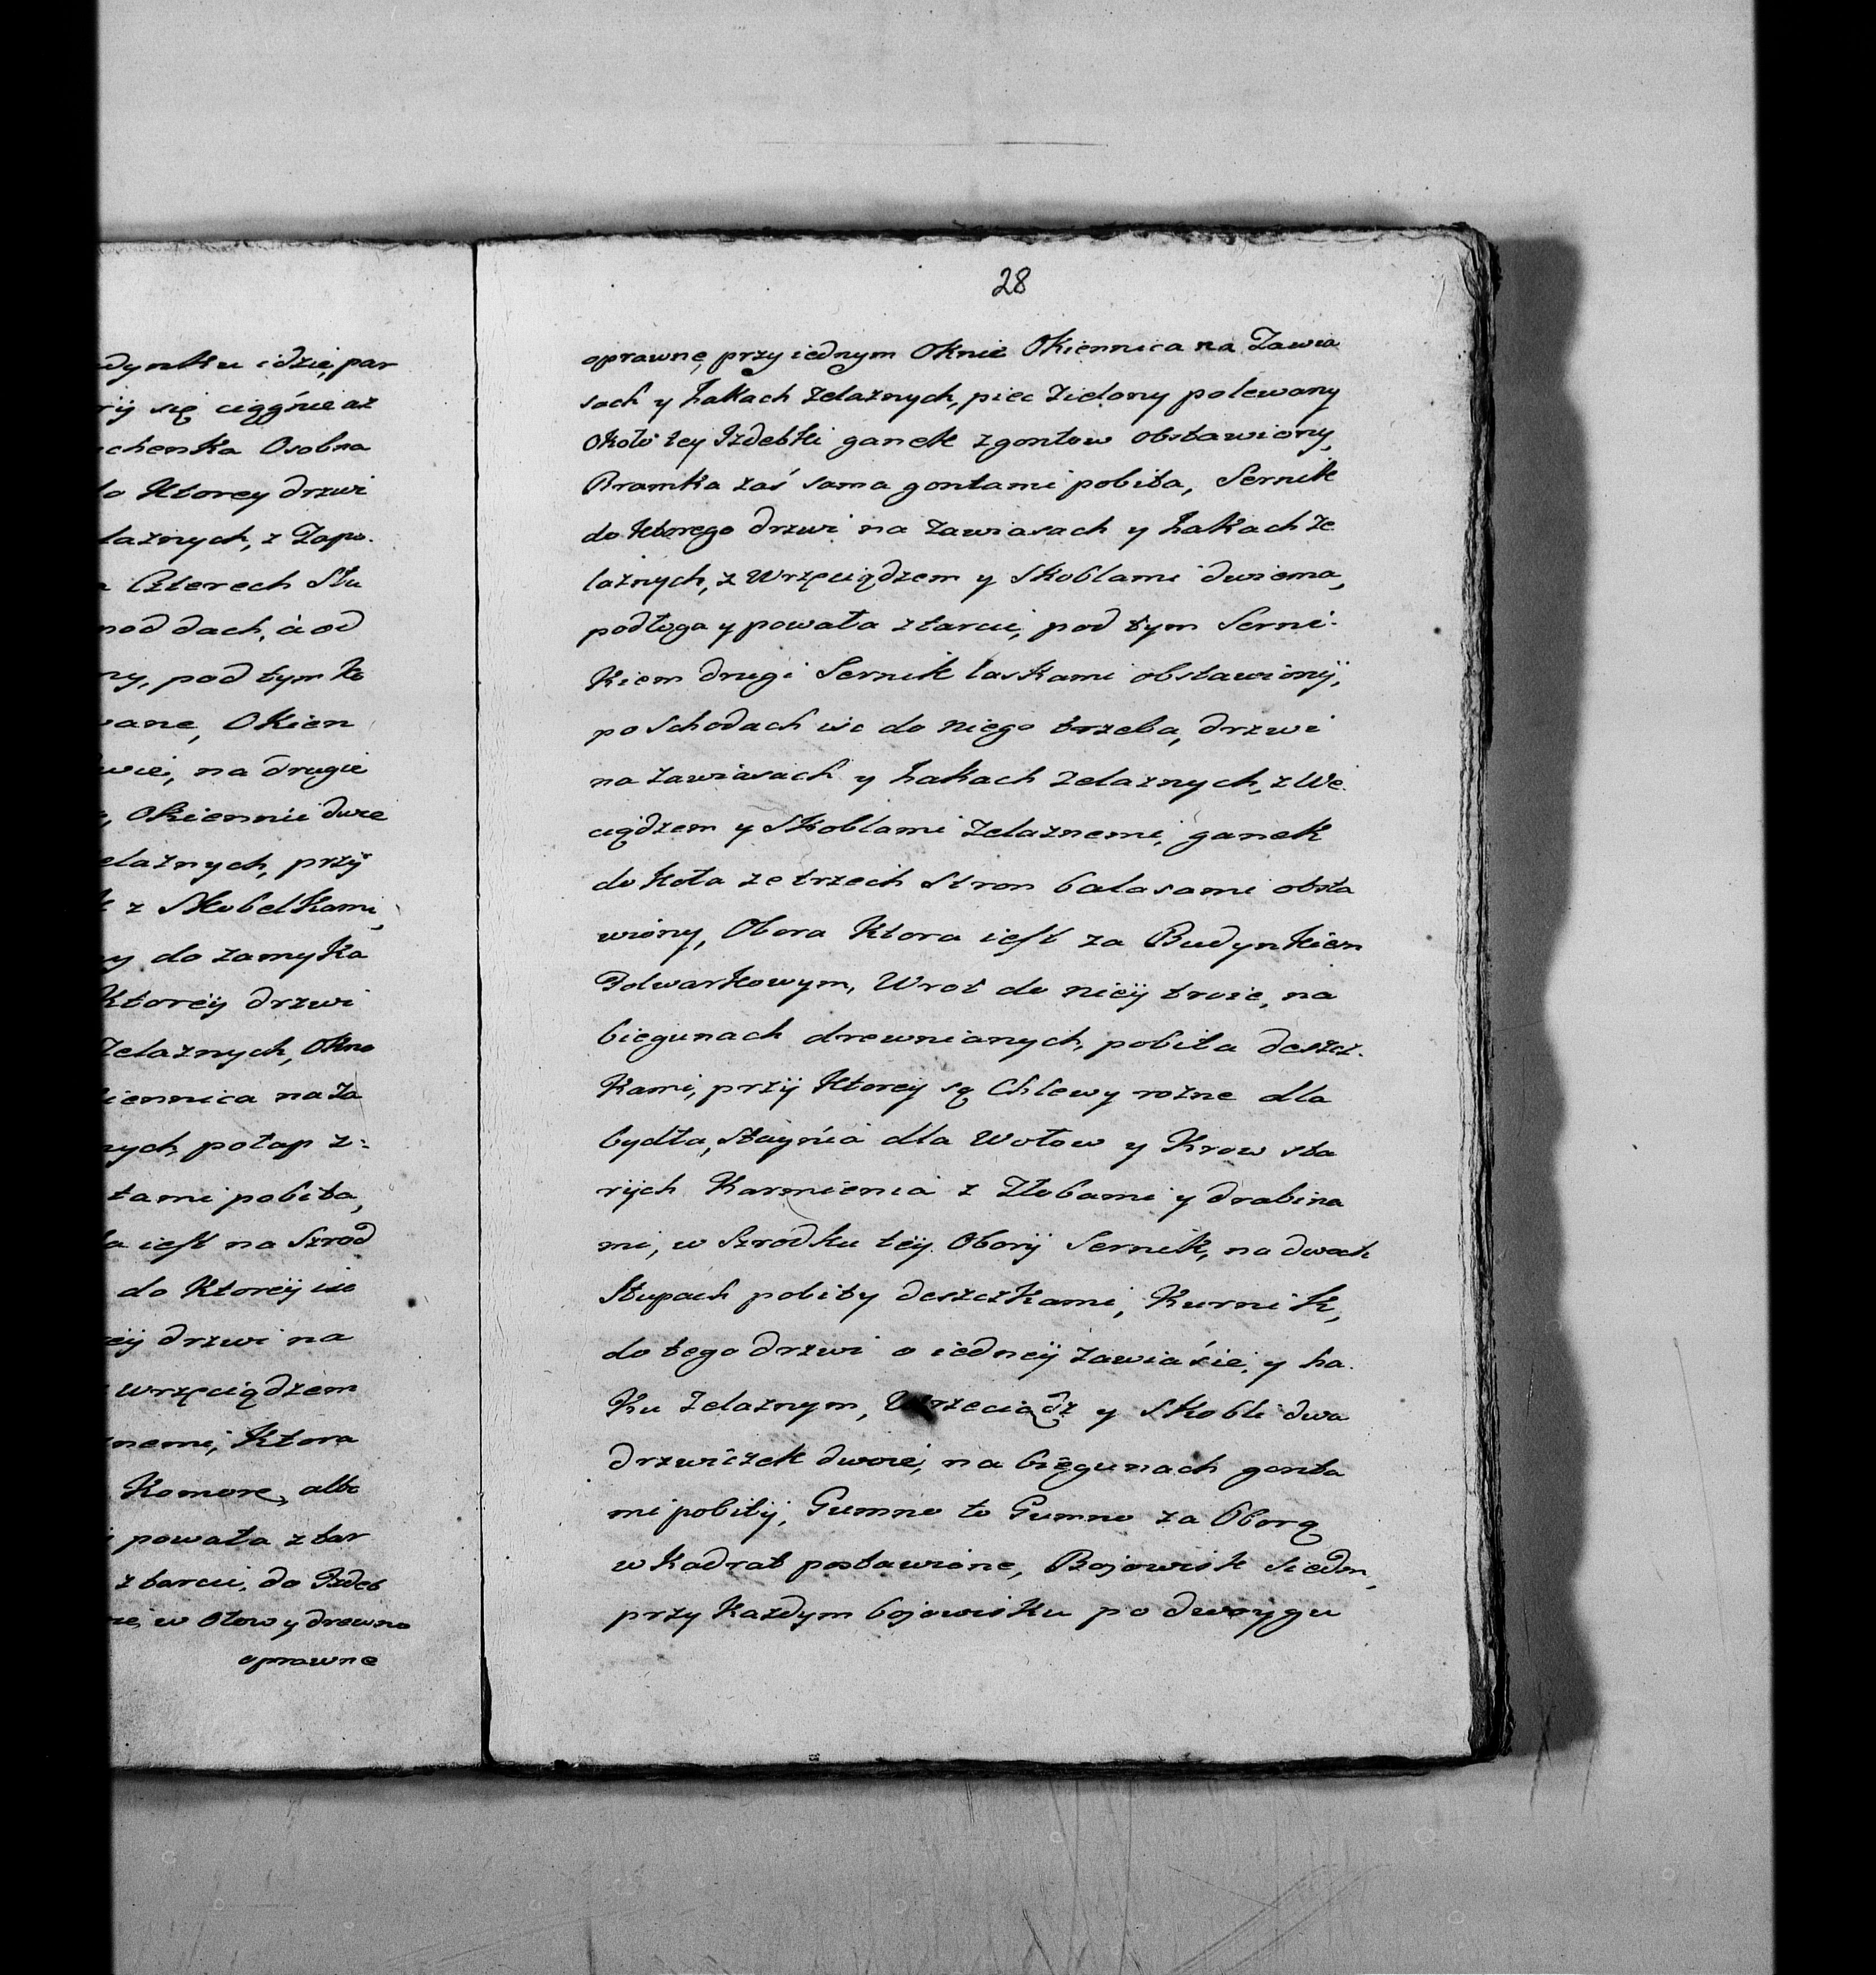 dynku idzie, par
rÿ się ciągnie aż
chenka Osobna
do Ktorey drzwi
laznych, z Zapo.
Czterech Słu
pod dach, à od
ny, pod tym Ko
wane, Okien
na drugie
Okiennic dwie
elaznych, przÿ
z Skobelkami,
y do zamyKa
Ktoreÿ drzwi
Zelaznych, Okno
iennica na Za
nych, połap z:
tami pobita,
a iest na Szrod
do Ktoreÿ iść
eÿ drzwi na
wrzęciądzem
nemi, Ktora
Komore, albo
powała z tar
z tarcic, do Izdeb
w Ołow y drewno
oprawne
28
oprawne, przy iednym Oknie Okiennica na Zawia
sach y hakach Zelaznych, piec Zielony polewany
Około tey Izdebki ganek z gontow obstawiony,
Bramka zaś sama gontami pobita, Sernik
do Ktorego drzwi na zawiasach y hakach Ze
laznych, z Wrzęciądzem y Skoblami dwiema,
podłoga y powała z tarcic, pod tym Serni:
Kiem drugi Sernik łaskami obstawionÿ,
po Schodach iśc do niego trzeba, drzwi
na zawiasach y hakach Zelaznych, z We.
ciądzem y Skoblami Zelaznemi, ganek
do Koła ze trzech Stron balasami obsta
wiony, Obora Ktora iest za Budynkiem
Folwarkowym, Wrot do nieÿ troie, na
biegunach drewnianych, pobita deszcz.
Kami, przÿ Ktoreÿ są Chlewy rozne dla
bydła, Stayńia dla Wołow y Krow sta
rÿch Karmienia z Złobami y drabina
mi, w Szrodku teÿ Oborÿ Sernik, na dwoch
Słupach pobity deszczkami, Kurnik,
do tego drzwi o iedneÿ zawiasie, y ha.
Ku Zelaznym, Wrzeciądz y Skobli dwa
drzwiczek dwoie, na biegunach gonta
mi pobitÿ, Gumno to Gumno za Oborą
w Kadrat postawione, Bojowisk Siedm,
przy Kazdym bojowisku po dwoygu